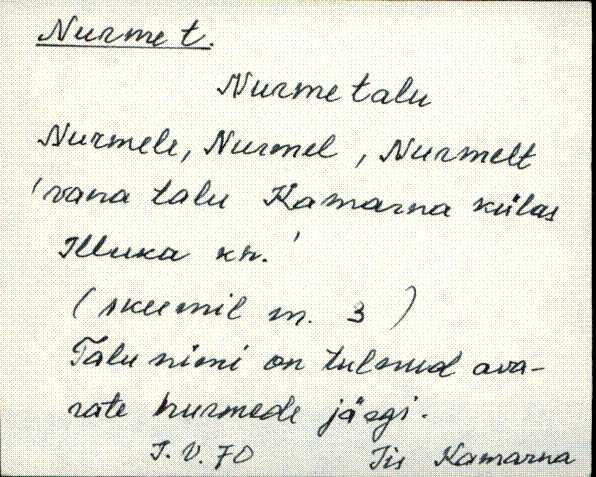 Nurme t.
Nurme talu
Nurmele, Nurmel, Nurmelt
'vana talu Kamarna külas
Illuka kn.'
(skeemil m. 3)
Talu nimi on tulnud ava-
rate nurmede järgi.
I.V.70 Iis Kamarna